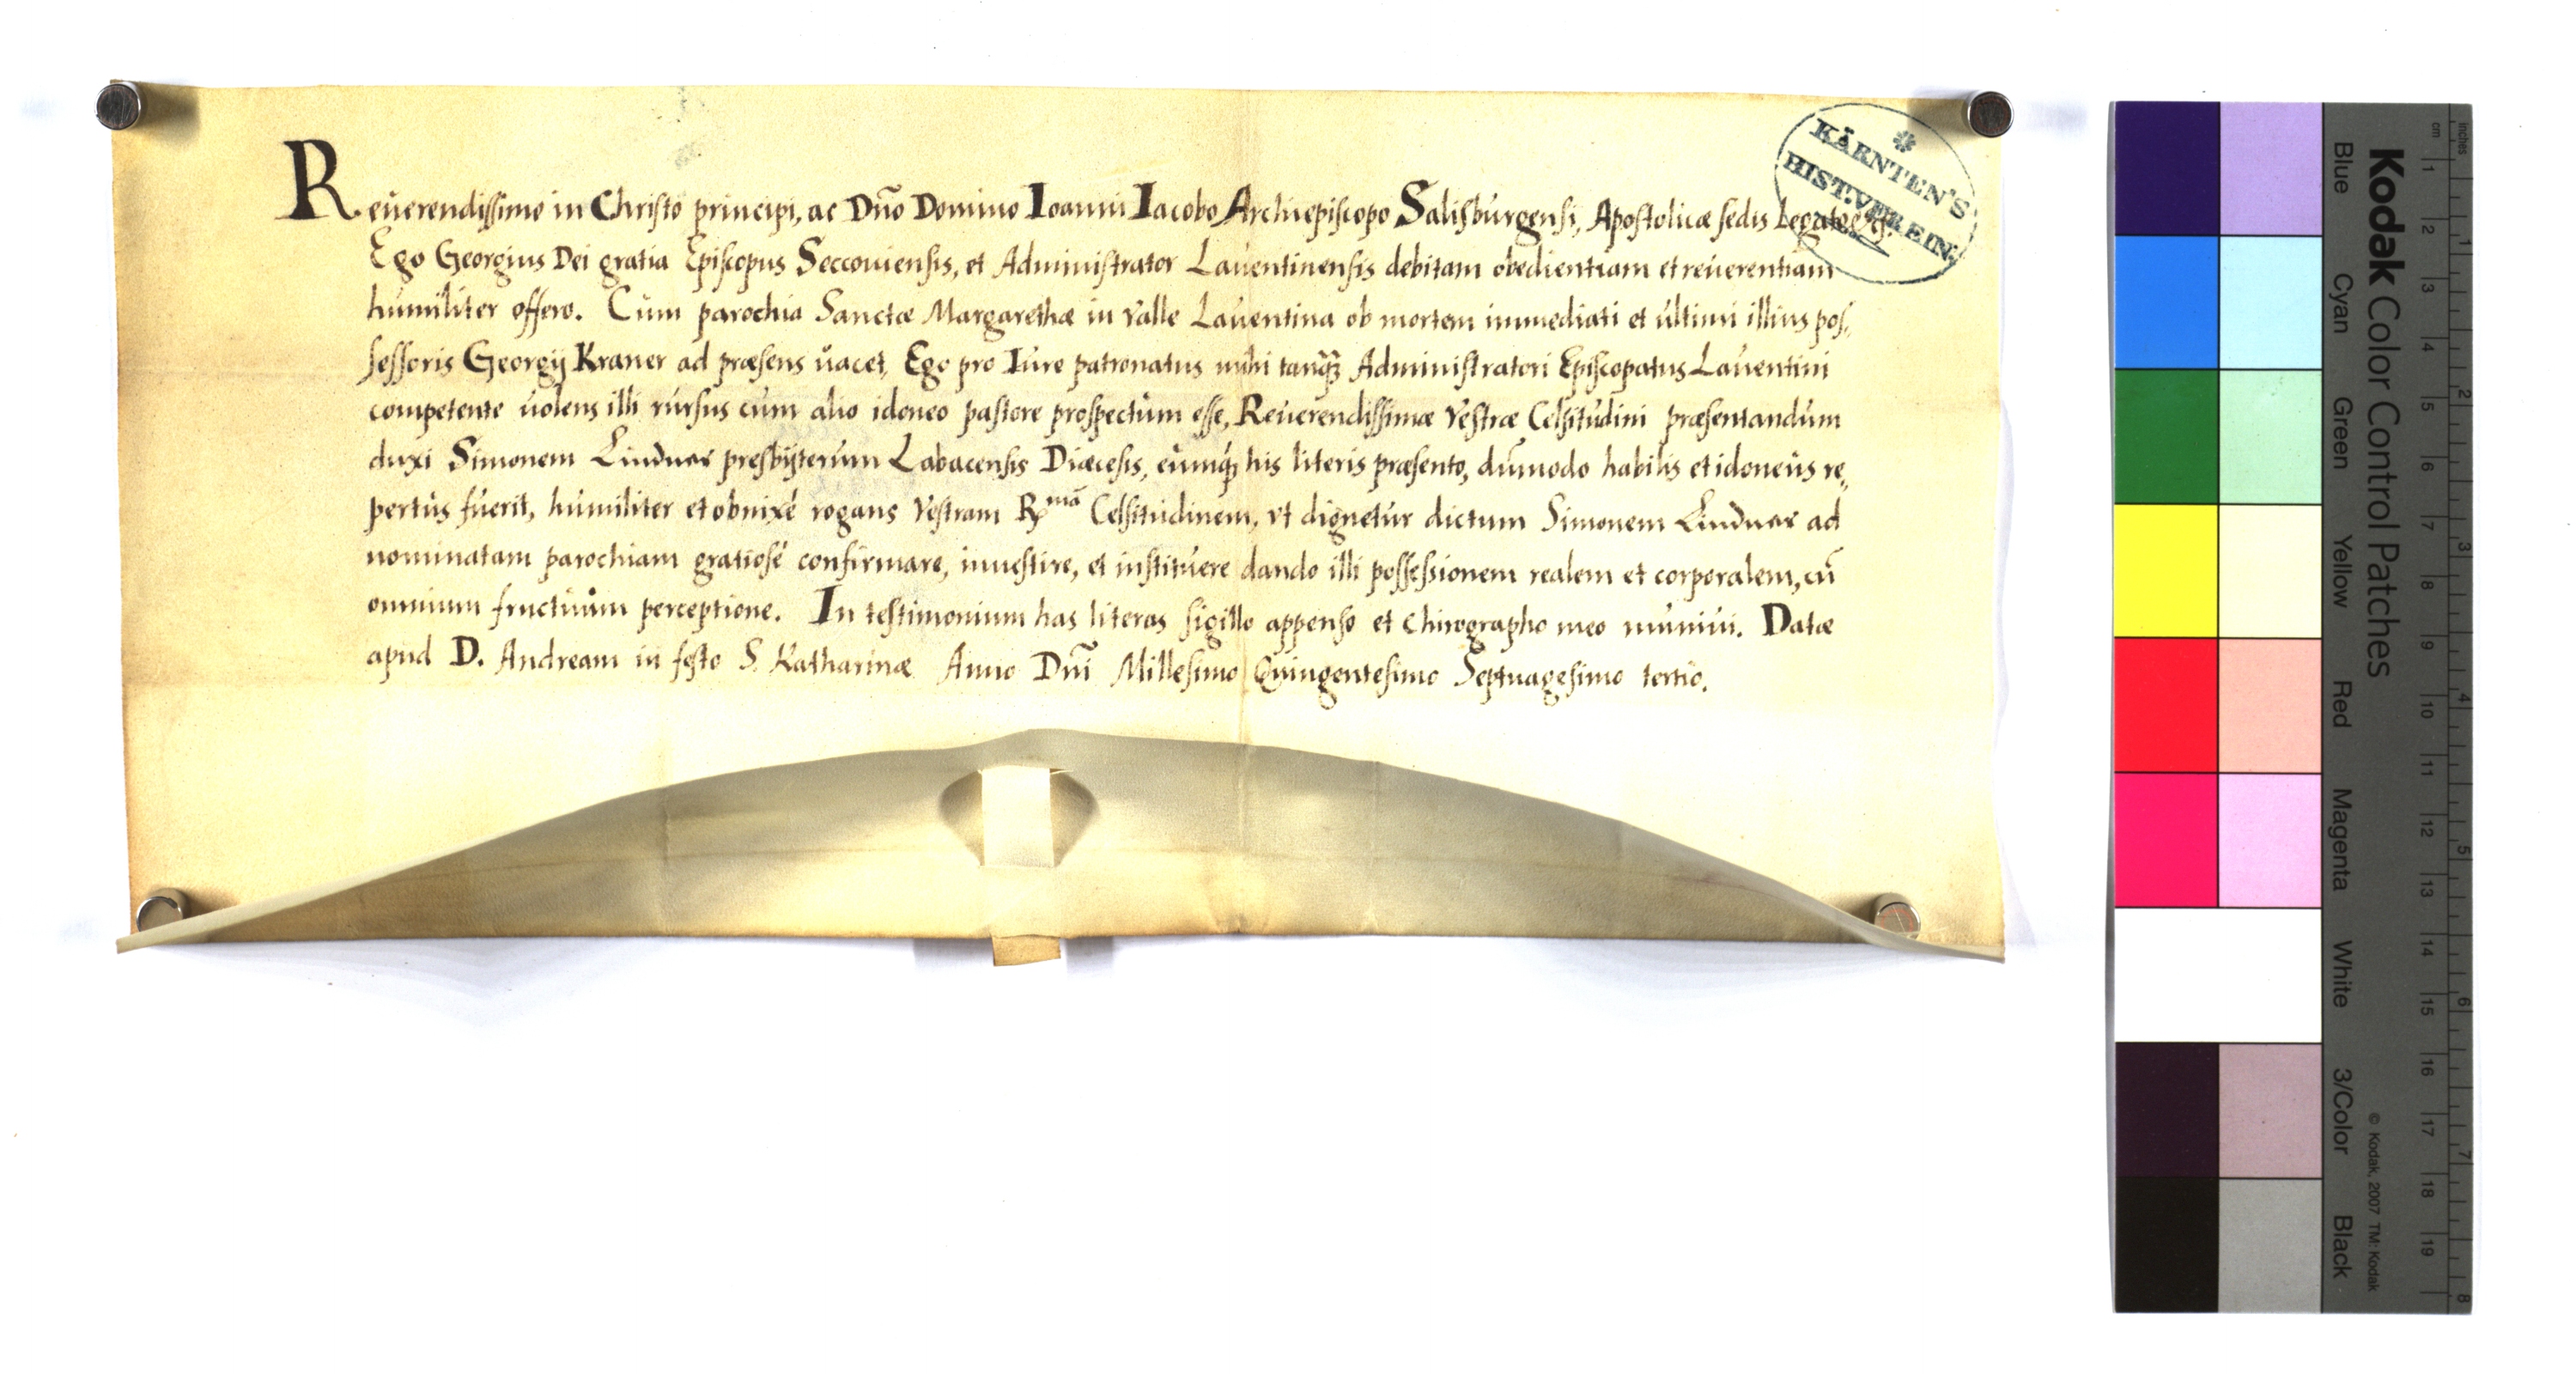 Reuerendissimo in Christo principi, ac Dño Domino Ioanni Iacobo Archiepiscopo Salisburgensi, Apostolicæ sedis Legato etc.
Ego Georgius Dei gratia Episcopus Seccouiensis, et Administrator Lauentinensis debitam obedientiam et reuerentiam
humiliter offero. Cum parochia Sanctæ Margarethæ in Valle Lauentina ob mortem immediati et ultimi illius pos,,
sessoris Georgij Kraner ad præsens uacet, Ego pro Iure patronatus mihi tanq̃ꝫ Administratori Episcopatus Lauentini
competente uolens illi rursus cum alio idoneo pastore prospectum esse, Reuerendissimæ Vestræ Celsitudini præsentandum
duxi Simonem Lindner presbyterum Labacensis Diæcesis, eumqꝫ his literis præsento, dummodo habilis et idoneus re,,
pertus fuerit, humiliter et obnixé rogans Vestram Rmã Celsitudinem, vt dignetur dictum Simonem Lindner ad
nominatam parochiam gratiosé confirmare, inuestire, et instituere dando illi possessionem realem et corporalem, cũ
omnium fructuum perceptione. In testimonium has literas sigillo appenso et Chirographo meo muniui. Datæ
apud D. Andream in festo S. Katharinæ Anno Dñi Millesimo Quingentesimo Septuagesimo tertio.
KÄRNTEN'S
HIST.VEREIN.
Kodak Color Control Patches
Blue Cyan Green Yellow Red Magenta White 3/Color Black
© Kodak, 2007 TM: Kodak
cm 1 2 3 4 5 6 7 8 9 10 11 12 13 14 15 16 17 18 19
inches 1 2 3 4 5 6 7 8